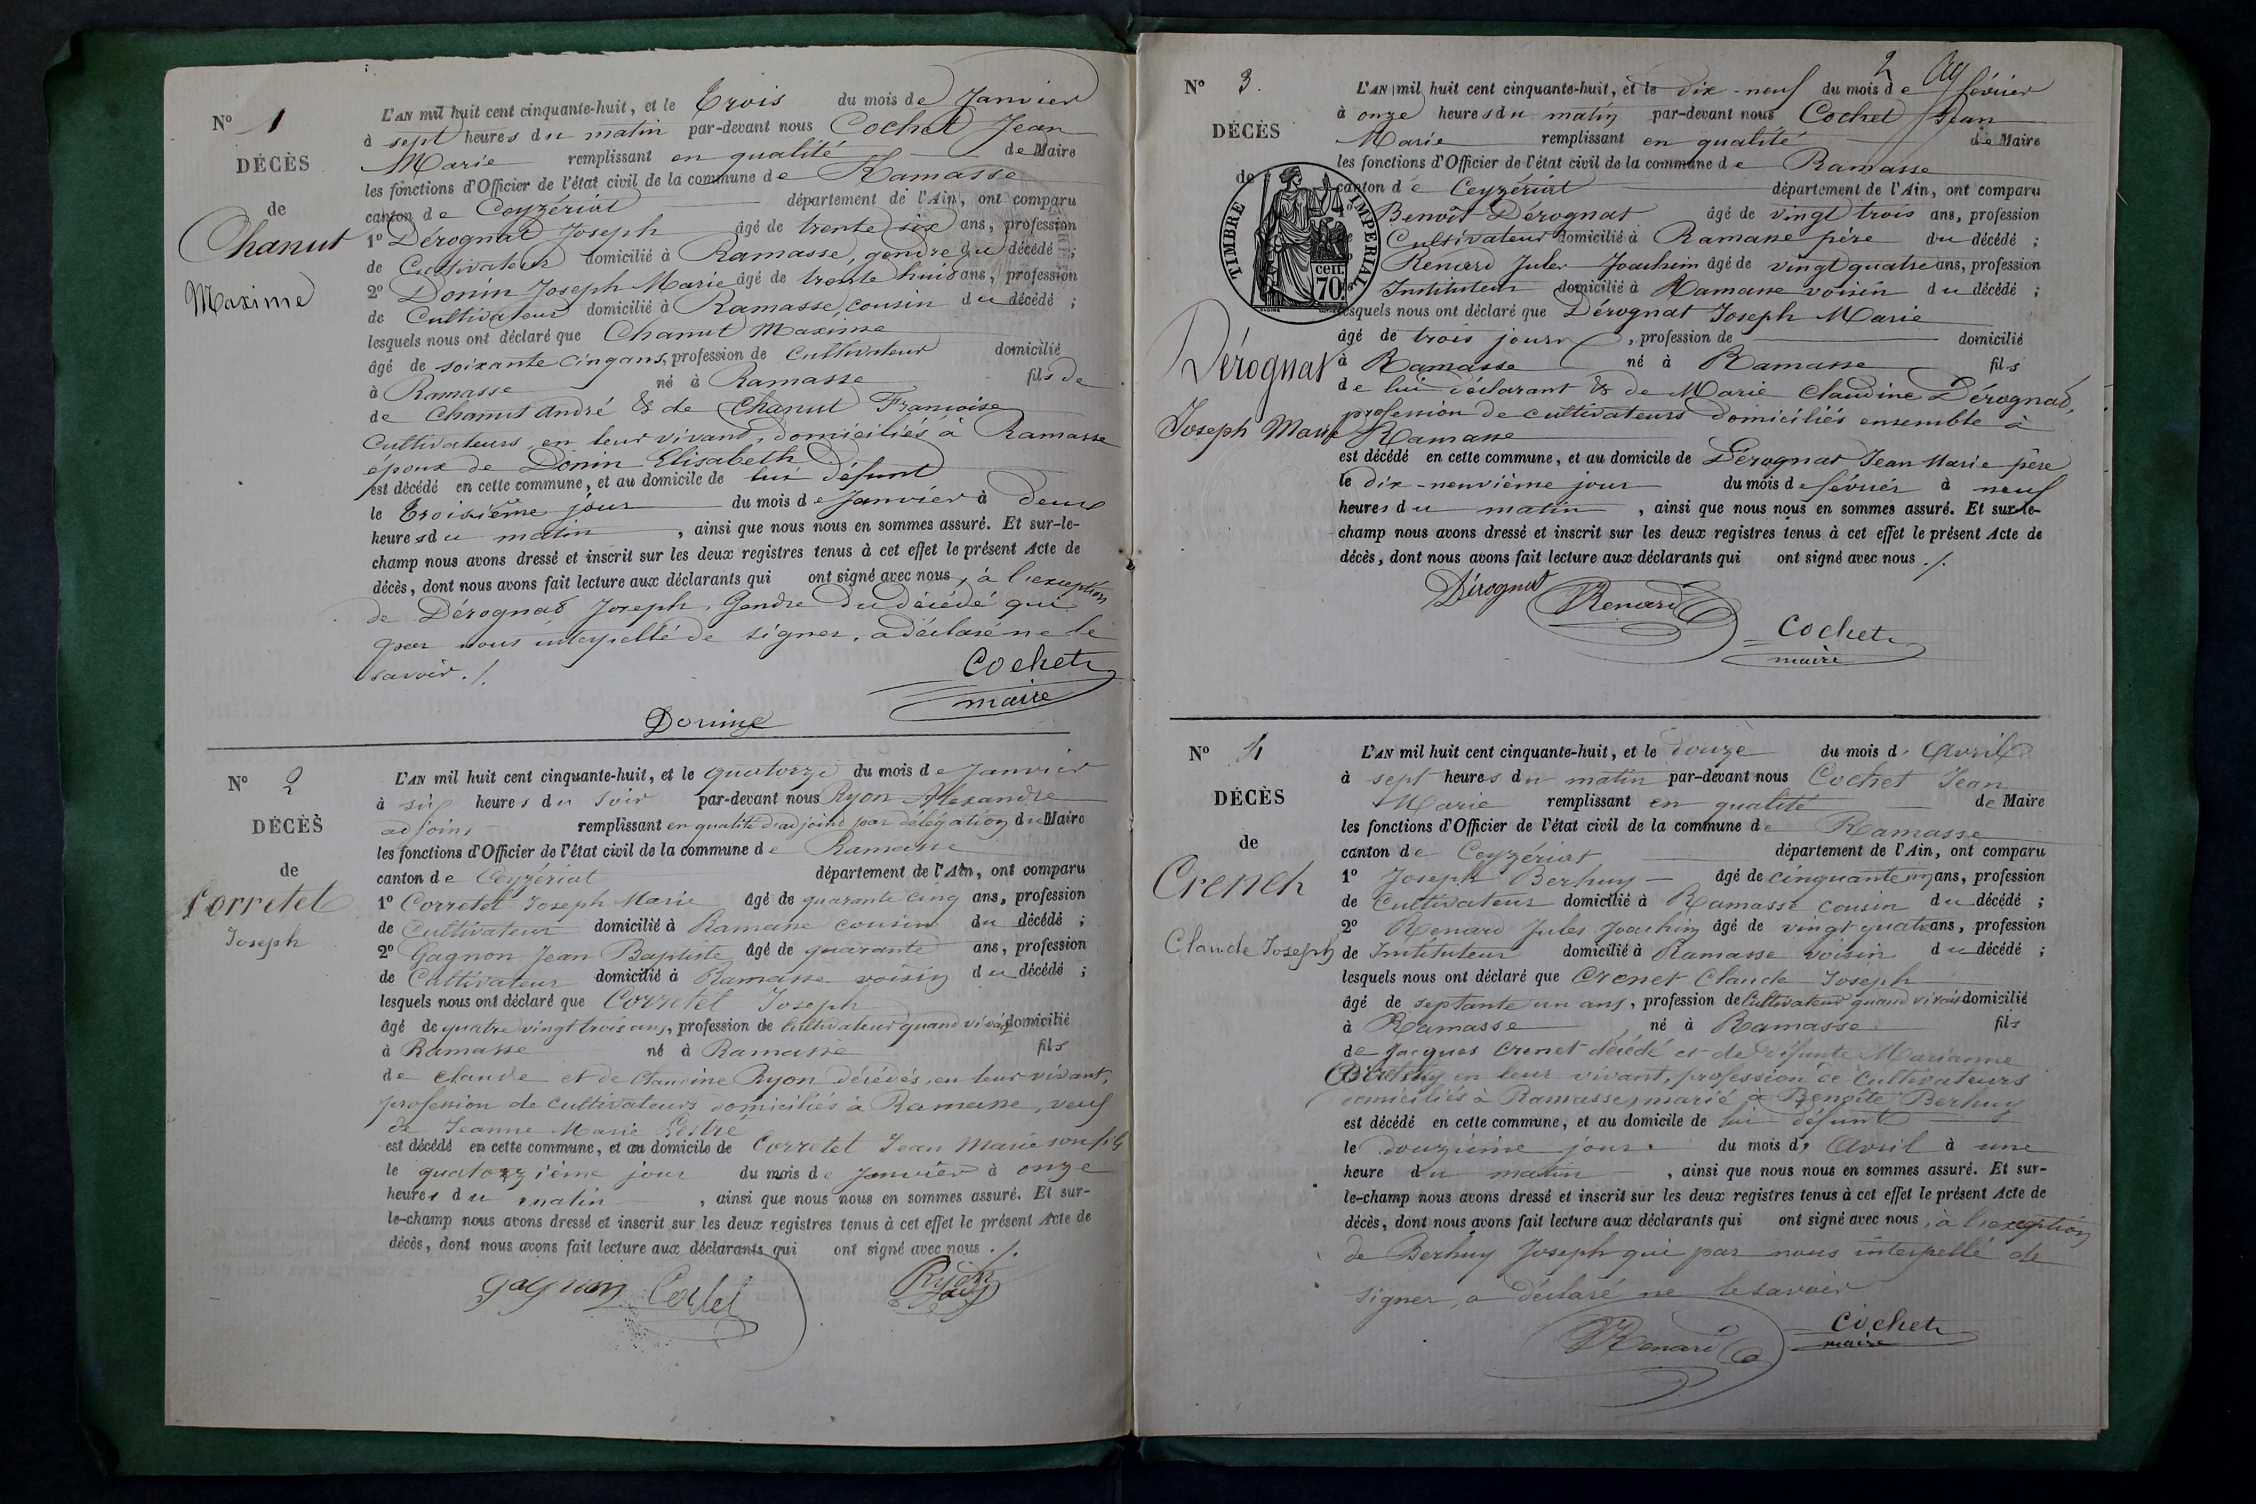 N° 1
DÉCÈS
de
Chanut
Maxime
L'AN mil huit cent cinquante-huit, et le Trois du mois de Janvier
à sept heures du matin par-devant nous Cochet Jean
Marie remplissant en qualité de Maire
les fonctions d'Officier de l'état civil de la commune de Ramasse
canton de Ceyzériat département de l'Ain, ont comparu
1° Dérognat Joseph âgé de trente six ans, profession
de Cultivateur domicilié à Ramasse, gendre du décédé ;
2° Donin Joseph Marie âgé de trente huit ans, profession
de Cultivateur domicilié à Ramasse, cousin du décédé ;
lesquels nous ont déclaré que Chanut Maxime
âgé de soixante cinq ans, profession de Cultivateur domicilié
à Ramasse né à Ramasse fils de
de Chanut André & de Chanut Françoise
Cultivateurs en leur vivant, domiciliés à Ramasse
époux de Donin Elisabeth
est décédé en cette commune, et au domicile de lui défunt
le Troisième jour du mois de Janvier à deux
heures du matin, ainsi que nous nous en sommes assuré. Et sur-le-
champ nous avons dressé et inscrit sur les deux registres tenus à cet effet le présent Acte de
décès, dont nous avons fait lecture aux déclarants qui ont signé avec nous, à l'exception
de Dérognat Joseph, Gendre du décédé qui
par nous interpellé de signer, a déclaré ne le
savoir ./.
Cochet
maire
Donin
N° 2
DÉCÈS
de
Corretel
Joseph
L'AN mil huit cent cinquante-huit, et le quatorze du mois de Janvier
à six heures du soir par-devant nous Ryon Alexandre
adjoint remplissant en qualité d'adjoint par délégation du Maire
les fonctions d'Officier de l'état civil de la commune de Ramasse
canton de Ceyzériat département de l'Ain, ont comparu
1° Corretel Joseph Marie âgé de quarante cinq ans, profession
de Cultivateur domicilié à Ramasse cousin du décédé ;
2° Gagnon Jean Baptiste âgé de quarante ans, profession
de Cultivateur domicilié à Ramasse voisin du décédé ;
lesquels nous ont déclaré que Corretel Joseph
âgé de quatre vingt trois ans, profession de Cultivateur quand vivait domicilié
à Ramasse né à Ramasse fils
de Claude et de Claudine Ryon décédés, en leur vivant,
profession de cultivateurs domiciliés à Ramasse, veuf
de Jeanne Marie
est décédé en cette commune, et au domicile de Corretel Jean Marie son fils
le quatorzième jour du mois de Janvier à onze
heures du matin, ainsi que nous nous en sommes assuré. Et sur-
le-champ nous avons dressé et inscrit sur les deux registres tenus à cet effet le présent Acte de
décès, dont nous avons fait lecture aux déclarants qui ont signé avec nous ./.
gagnion Cortel Ryon
N° 3.
DÉCÈS
de
TIMBRE IMPERIAL
70 cen.
Dérognat
Joseph Marie
2
L'AN mil huit cent cinquante-huit, et le dix-neuf du mois de février
à onze heures du matin par-devant nous Cochet Jean
Marie remplissant en qualité de Maire
les fonctions d'Officier de l'état civil de la commune de Ramasse
canton de Ceyzériat département de l'Ain, ont comparu
Benoît Dérognat âgé de vingt trois ans, profession
Cultivateur domicilié à Ramasse père du décédé ;
Renard Jules Joachim âgé de vingt quatre ans, profession
Instituteur domicilié à Ramasse voisin du décédé ;
lesquels nous ont déclaré que Dérognat Joseph Marie
âgé de trois jours, profession de domicilié
à Ramasse né à Ramasse fils
de lui déclarant & de Marie Claudine Dérognat,
profession de cultivateurs domiciliés ensemble à
Ramasse
est décédé en cette commune, et au domicile de Dérognat Jean Marie père
le dix-neuvième jour du mois de février à neuf
heures du matin, ainsi que nous nous en sommes assuré. Et sur-le-
champ nous avons dressé et inscrit sur les deux registres tenus à cet effet le présent Acte de
décès, dont nous avons fait lecture aux déclarants qui ont signé avec nous ./.
Dérognat Renard
Cochet
maire
N° 4
DÉCÈS
de
Crenet
Claude Joseph
L'AN mil huit cent cinquante-huit, et le douze du mois d'Avril
à sept heures du matin par-devant nous Cochet Jean
Marie remplissant en qualité de Maire
les fonctions d'Officier de l'état civil de la commune de Ramasse
canton de Ceyzériat département de l'Ain, ont comparu
1° Joseph Berhuy âgé de cinquante ans, profession
de Cultivateur domicilié à Ramasse cousin du décédé ;
2° Renard Jules Joachim âgé de vingt quatre ans, profession
de Instituteur domicilié à Ramasse voisin du décédé ;
lesquels nous ont déclaré que Crenet Claude Joseph
âgé de septante un ans, profession de Cultivateur quand vivait domicilié
à Ramasse, né à Ramasse fils
de Jacques Crenet décédé et de défunte Marianne
en leur vivant, profession de Cultivateurs
domiciliés à Ramasse, marié à Benoîte Berhuy
est décédé en cette commune, et au domicile de lui défunt
le douzième jour du mois d'Avril à une
heure du matin, ainsi que nous nous en sommes assuré. Et sur-
le-champ nous avons dressé et inscrit sur les deux registres tenus à cet effet le présent Acte de
décès, dont nous avons fait lecture aux déclarants qui ont signé avec nous, à l'exception
de Berhuy Joseph qui par nous interpellé de
signer, a déclaré ne le savoir
Renard
Cochet
maire